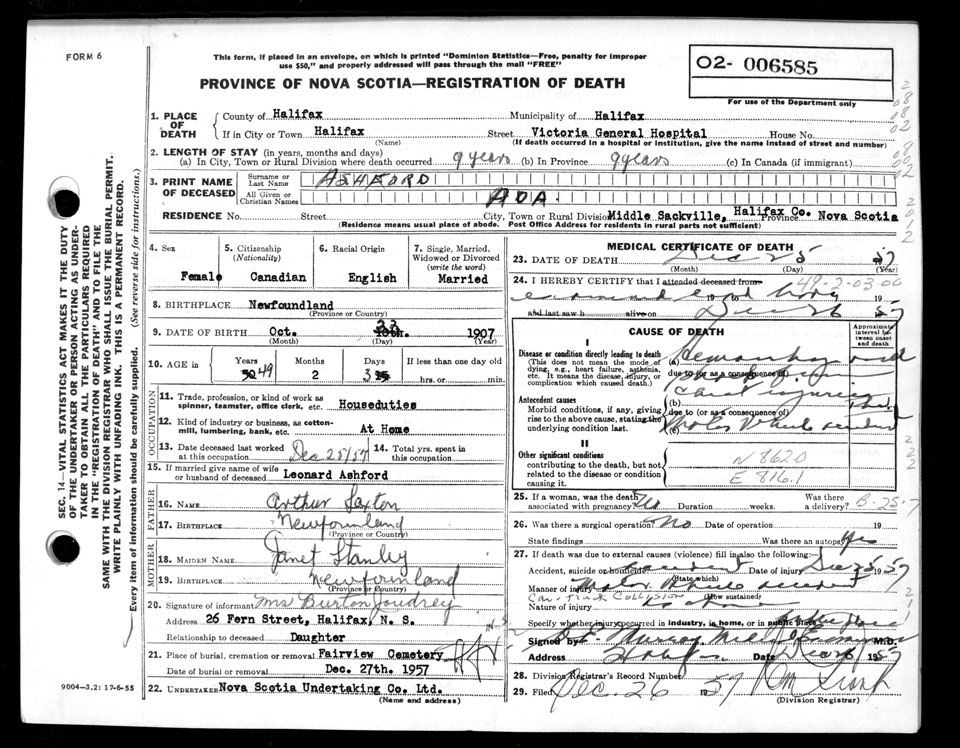 FORM 6
This form, if placed in an envelope, on which is printed "Dominion Statistics—Free, penalty for improper
use $50," and properly addressed will pass through the mail "FREE"
PROVINCE OF NOVA SCOTIA—REGISTRATION OF DEATH
02- 006585
For use of the Department only
1. PLACE OF DEATH County of Halifax Municipality of Halifax
If in City or Town Halifax Street Victoria General Hospital House No.
(Name) (If death occurred in a hospital or institution, give the name instead of street and number)
2. LENGTH OF STAY (in years, months and days)
(a) In City, Town or Rural Division where death occurred 9 years (b) In Province 9 years (c) In Canada (if immigrant)
3. PRINT NAME OF DECEASED Surname or Last Name ASHFORD
All Given or Christian Names ADA.
RESIDENCE No. Street City, Town or Rural Division Middle Sackville, Halifax Co. Province Nova Scotia
(Residence means usual place of abode. Post Office Address for residents in rural parts not sufficient)
SEC. 14—VITAL STATISTICS ACT MAKES IT THE DUTY
OF THE UNDERTAKER OR PERSON ACTING AS UNDER-
TAKER TO OBTAIN ALL THE PARTICULARS REQUIRED
IN THE "REGISTRATION OF DEATH" AND TO FILE THE
SAME WITH THE DIVISION REGISTRAR WHO SHALL ISSUE THE BURIAL PERMIT.
WRITE PLAINLY WITH UNFADING INK. THIS IS A PERMANENT RECORD.
Every item of information should be carefully supplied. (See reverse side for instructions.)
4. Sex 5. Citizenship (Nationality) 6. Racial Origin 7. Single, Married, Widowed or Divorced (write the word)
Female Canadian English Married
8. BIRTHPLACE Newfoundland
(Province or Country)
9. DATE OF BIRTH Oct. 1907
(Month) (Day) (Year)
10. AGE in Years Months Days If less than one day old
49 2 3 hrs. or min.
OCCUPATION
11. Trade, profession, or kind of work as
spinner, teamster, office clerk, etc. Houseduties
12. Kind of industry or business, as cotton-
mill, lumbering, bank, etc. At Home
13. Date deceased last worked at this occupation Dec 25/57 14. Total yrs. spent in this occupation
15. If married give name of wife or husband of deceased Leonard Ashford
FATHER
16. NAME Arthur Saxton
17. BIRTHPLACE Newfounland
(Province or Country)
MOTHER
18. MAIDEN NAME Janet Stanley
19. BIRTHPLACE Newfounland
(Province or Country)
20. Signature of informant Mrs Burton Joudrey
Address 26 Fern Street, Halifax, N. S.
Relationship to deceased Daughter
21. Place of burial, cremation or removal Fairview Cemetery
Date of burial or removal Dec. 27th. 1957
22. UNDERTAKER Nova Scotia Undertaking Co. Ltd.
(Name and address)
9004—3.2: 17-6-55
MEDICAL CERTIFICATE OF DEATH
23. DATE OF DEATH Dec 25 57
(Month) (Day) (Year)
24. I HEREBY CERTIFY that I attended deceased from 49-2-03 00
19
and last saw h alive on Dec 26 57
CAUSE OF DEATH Approximate interval between onset and death
I
Disease or condition directly leading to death
(This does not mean the mode of
dying, e.g., heart failure, asthenia,
etc. It means the disease, injury, or
complication which caused death.)
(a)
due to (or as a consequence of)
Antecedent causes
Morbid conditions, if any, giving
rise to the above cause, stating the
underlying condition last.
(b)
due to (or as a consequence of)
(c) Motor Vehicle accident
II
Other significant conditions
contributing to the death, but not
related to the disease or condition
causing it.
N 8620
E 816.1
25. If a woman, was the death associated with pregnancy? No Duration weeks. Was there a delivery?
B-25-7
26. Was there a surgical operation? No Date of operation 19
State findings Was there an autopsy? Yes
27. If death was due to external causes (violence) fill in also the following:
Accident, suicide or homicide accident Date of injury Dec 25 1957
(State which)
Manner of injury Motor Vehicle accident
(How sustained)
Car-truck Collision
Nature of injury
Specify whether injury occurred in industry, in home, or in public place
Signed by M.D.
Address Halifax Date Dec 26 1957
28. Division Registrar's Record Number
29. Filed Dec. 26 1957
(Division Registrar)